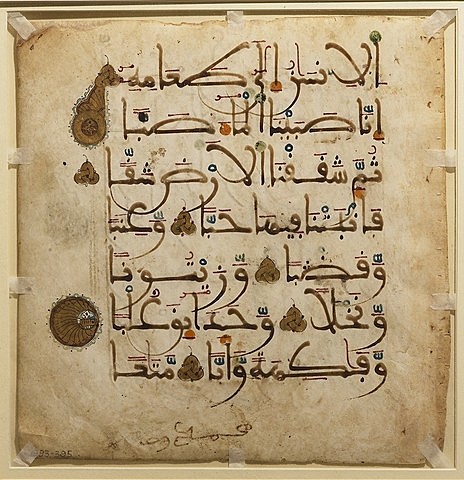 الْإِنسَٰنُ إِلَىٰ طَعَامِهِ
أَنَّا صَبَبْنَا الْمَاءَ صَبًّا
ثُمَّ شَقَقْنَا الْأَرْضَ شَقًّا
فَأَنبَتْنَا فِيهَا حَبًّا وَعِنَبًا
وَقَضْبًا وَزَيْتُونًا
وَنَخْلًا وَحَدَائِقَ غُلْبًا
وَفَٰكِهَةً وَأَبًّا مَّتَٰعًا